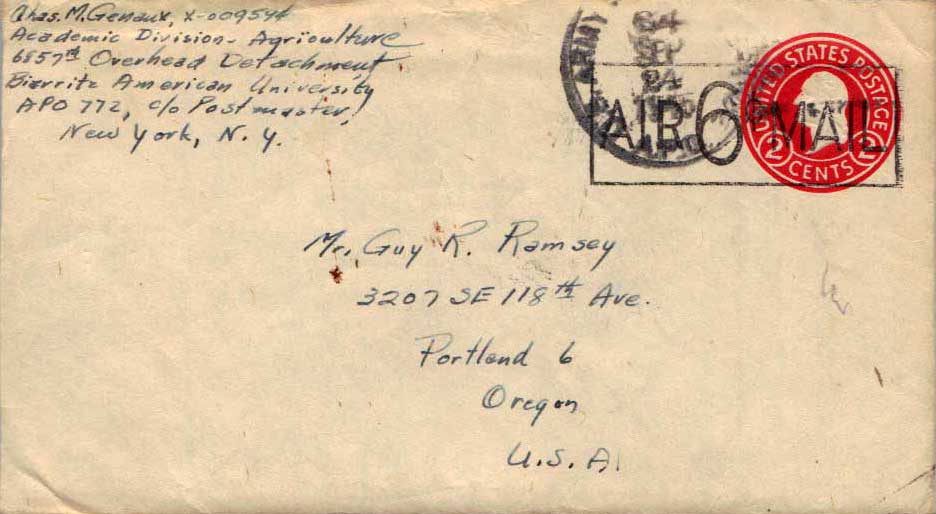 Chas. M. Genaux, X-009594
Academic Division - Agriculture
6857th Overhead Detachment
Biarritz American University
APO 772, c/o Postmaster,
New York, N.Y.
ARMY
SEP
24
AIR 6¢ MAIL
UNITED STATES POSTAGE
2 CENTS 2
Mr. Guy R. Ramsey
3207 SE 118th Ave.
Portland 6
Oregon
U.S.A.